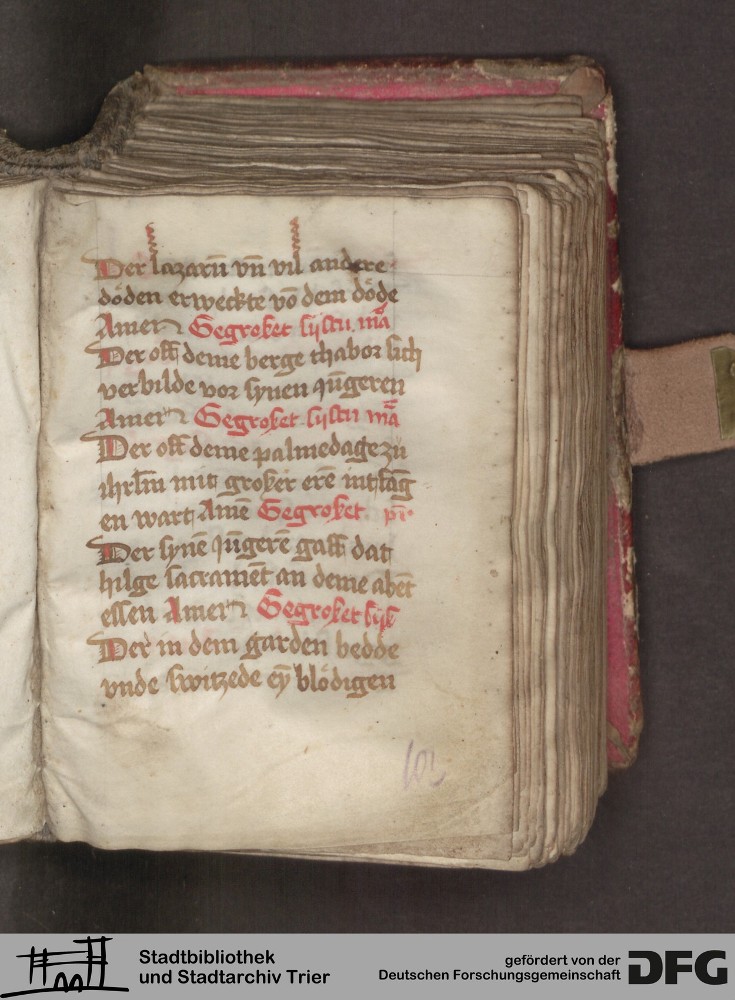 Der lazarū vn̄ vil andere
döden erweckte vō dem döde
Amen Gegroßet sijstu mā
Der off deme berge thabor sich
verbilde vor synen jūgeren
Amen Gegroßet sijstu mā
Der off deme palmedage zů
ihrlm̄ mit großer erē intfāg
en wart Amē Gegroßet
Der synē jūgerē gaff dat
hilge sacramēt an deme abēt
essen Amen Gegroßet sijst
Der in dem garden bedde
vnde switzede eȳ blödigen
102
Stadtbibliothek
und Stadtarchiv Trier
gefördert von der
Deutschen Forschungsgemeinschaft
DFG